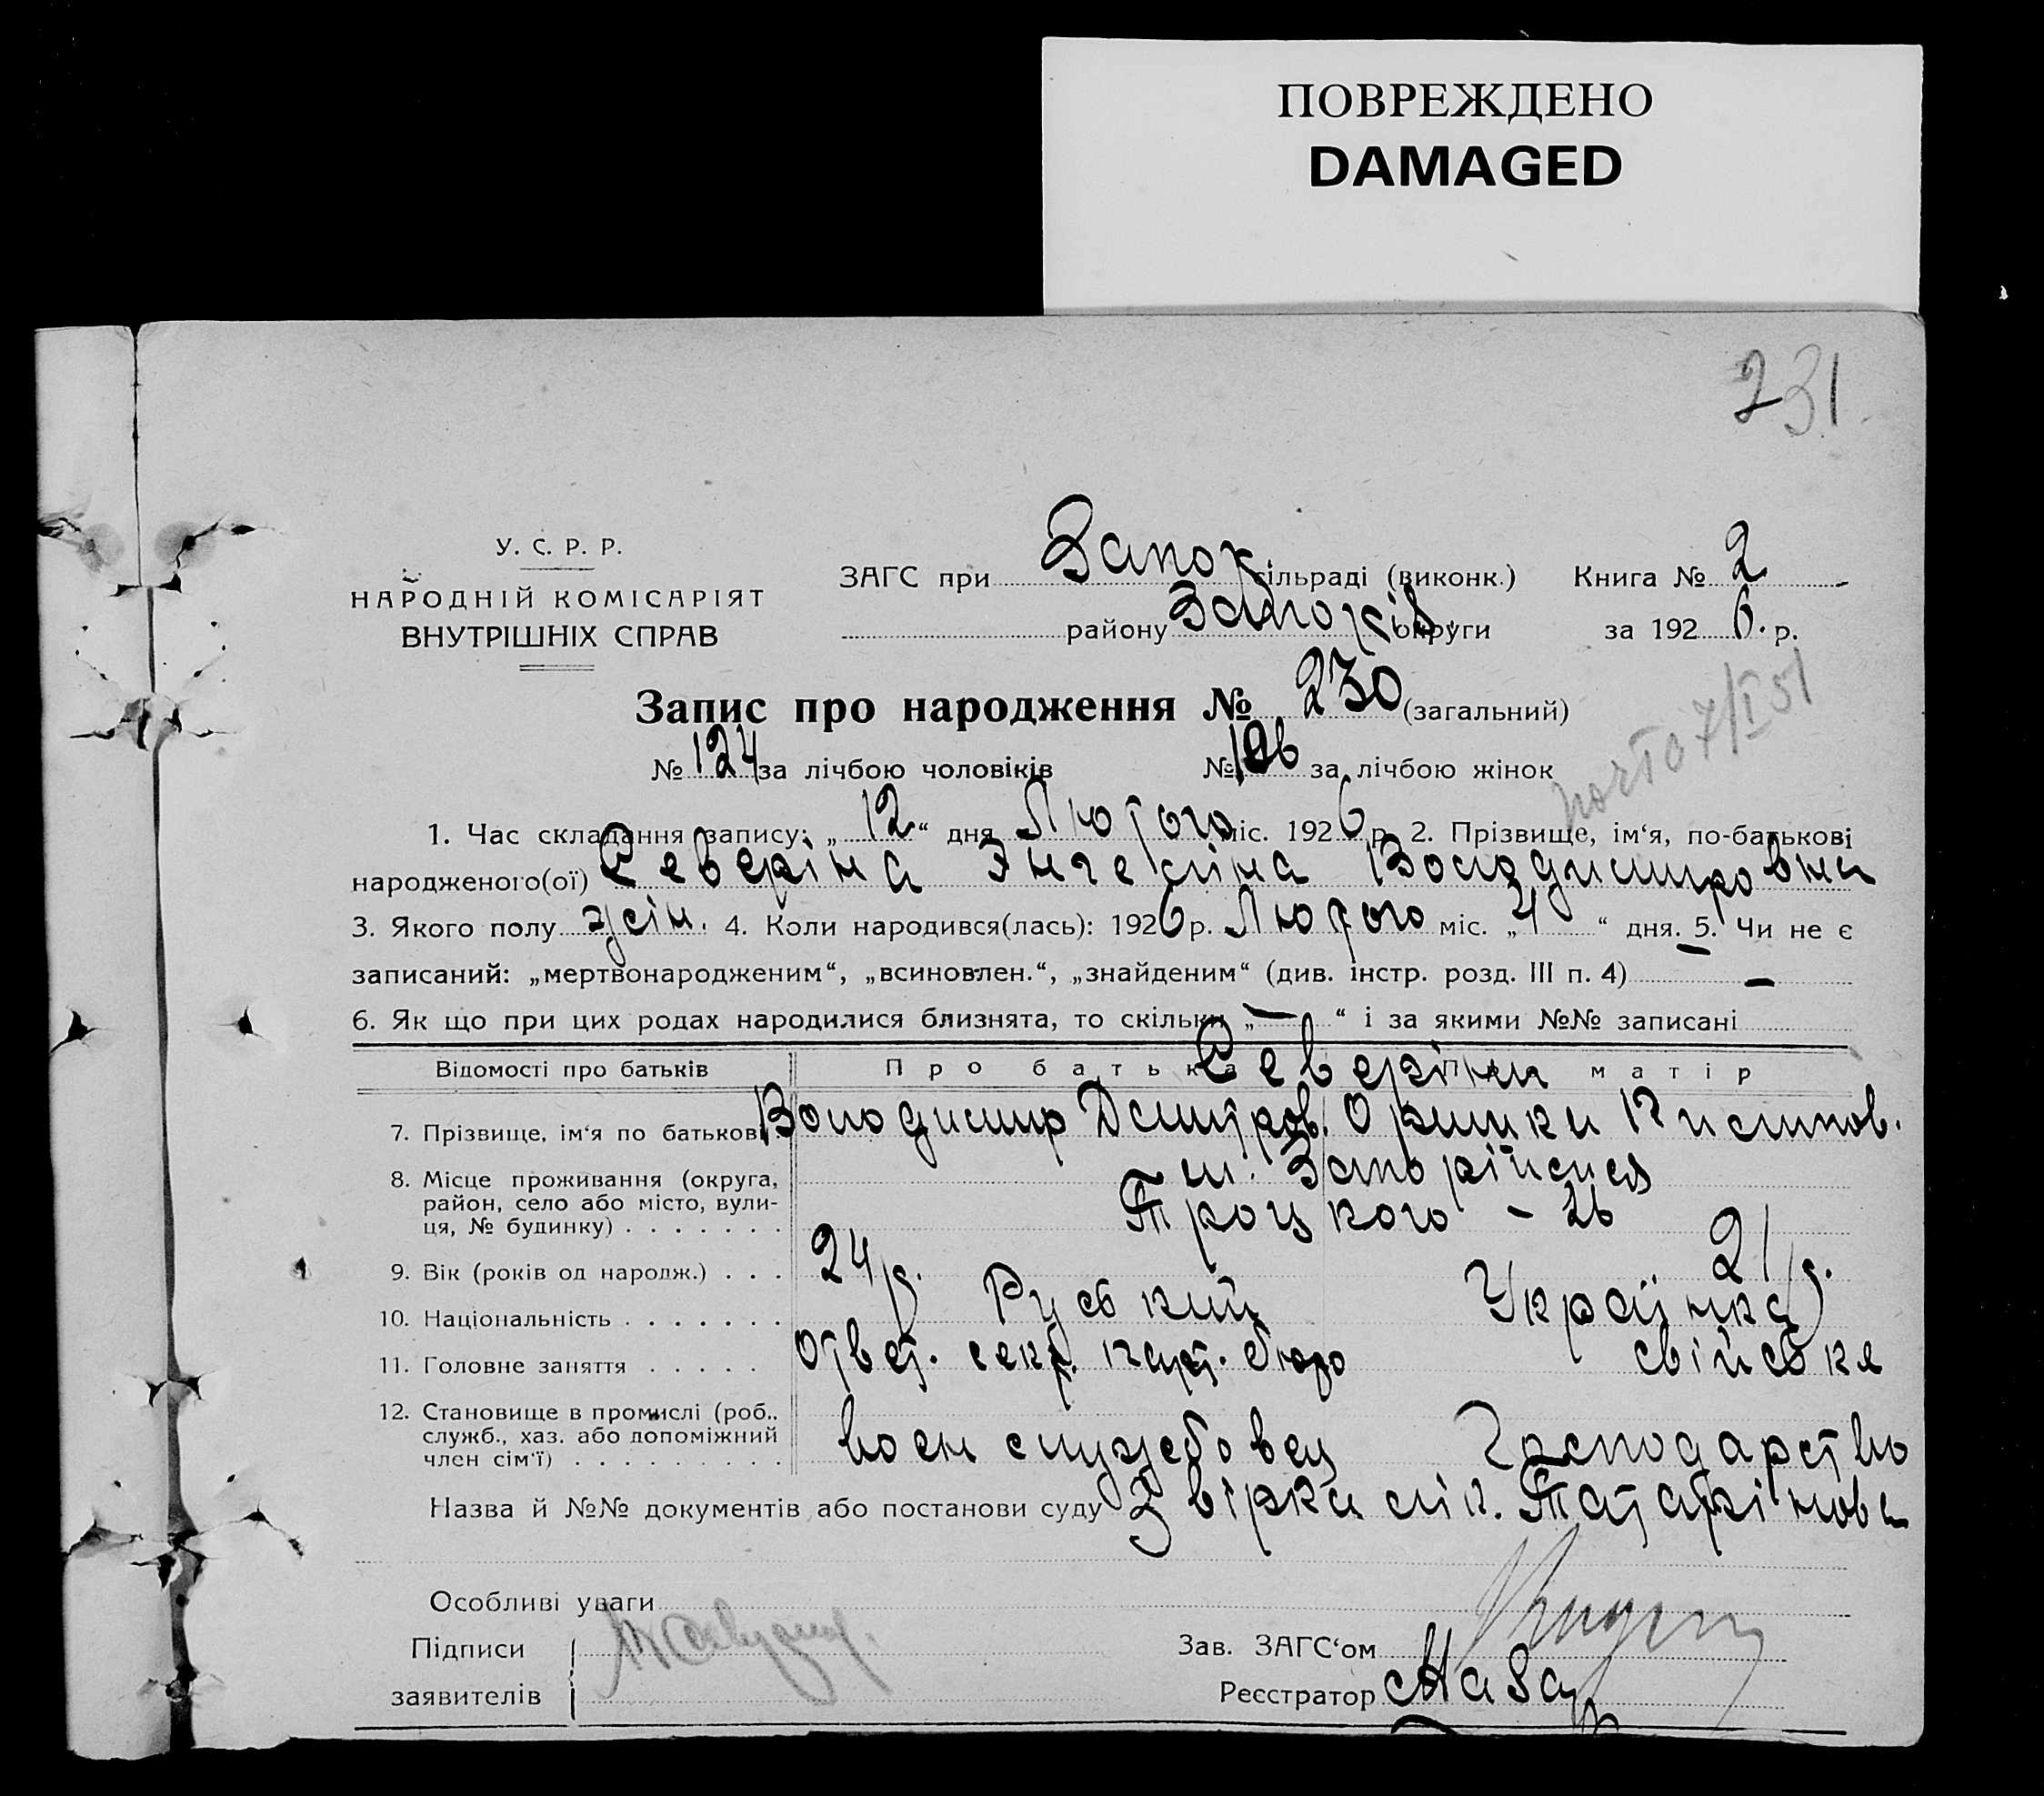 ПОВРЕЖДЕНО
DAMAGED
231
У. С. Р. Р.
НАРОДНІЙ КОМІСАРІЯТ
ВНУТРІШНІХ СПРАВ
ЗАГС при Запож сільраді (виконк.) Книга № 2
району Запожів. округи за 1926. р.
Запис про народження № 230 (загальний)
№ 124 за лічбою чоловіків № 106 за лічбою жінок
7/I 51
1. Час складання запису: „12“ дня Лютого міс. 1926 р. 2. Прізвище, ім‘я, по-батькові
народженого(ої) Северіна Энгеліна Володимировна
3. Якого полу жін. 4. Коли народився(лась): 1926 р. Лютого міс. „4“ дня. 5. Чи не є
записаний: „мертвонародженим“, „всиновлен.“, „знайденим“ (див. інстр. розд. III п. 4) —
6. Як що при цих родах народилися близнята, то скільки „—“ і за якими №№ записані
Відомості про батьків Про батька Северіни матір
7. Прізвище, ім‘я по батькові Володимир Дмитров. Оришки
8. Місце проживання (округа, м. Запоріжся
район, село або місто, вули- Троцкого - 26
ця, № будинку)
9. Вік (років од народж.) 24 р. 21 р.
10. Національність Руський Українка
11. Головне заняття Ответ. секр. парт. бюро свійське
12. Становище в промислі (роб.,
служб., хаз. або допоміжний воен службовец Господарство
член сім‘ї)
Назва й №№ документів або постанови суду Звірка лік. Татарінова
Особливі уваги
Підписи
заявителів
Зав. ЗАГС‘ом
Реєстратор